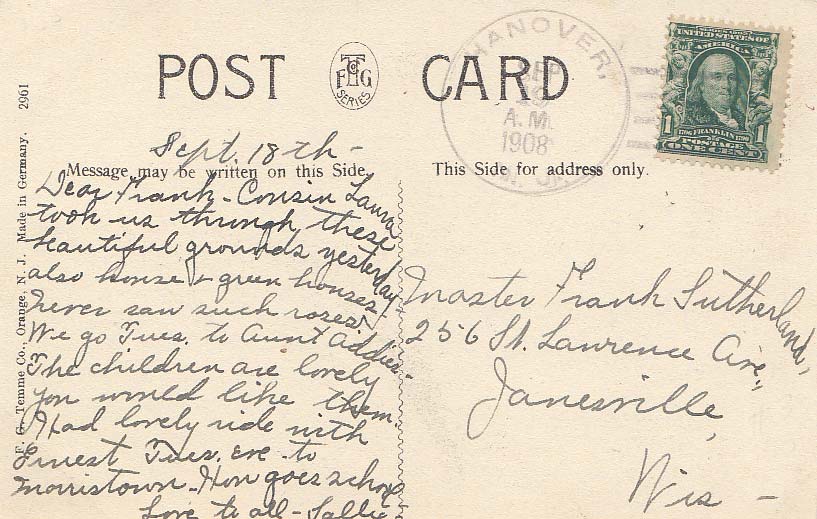 POST CARD
F. G. T. Co.
SERIES
HANOVER,
SEP
19
A.M.
1908
N. J.
SERIES 1902
UNITED STATES OF
AMERICA
1 1706 FRANKLIN 1790 1
POSTAGE
ONE CENT
Sept. 18th -
Message may be written on this Side.
This Side for address only.
Dear Frank - Cousin Laura
took us through these
beautiful grounds yesterday
also house & green houses.
Never saw such roses.
We go Tues. to Aunt Addie's -
The children are lovely
you would like them.
Had lovely ride with
Ernest Tues. eve to
Morristown - How goes school
Love to all - Sallie
Master Frank Sutherland,
256 St. Lawrence Ave.,
Janesville,
Wis -
F. G. Temme Co., Orange, N. J. Made in Germany. 2961